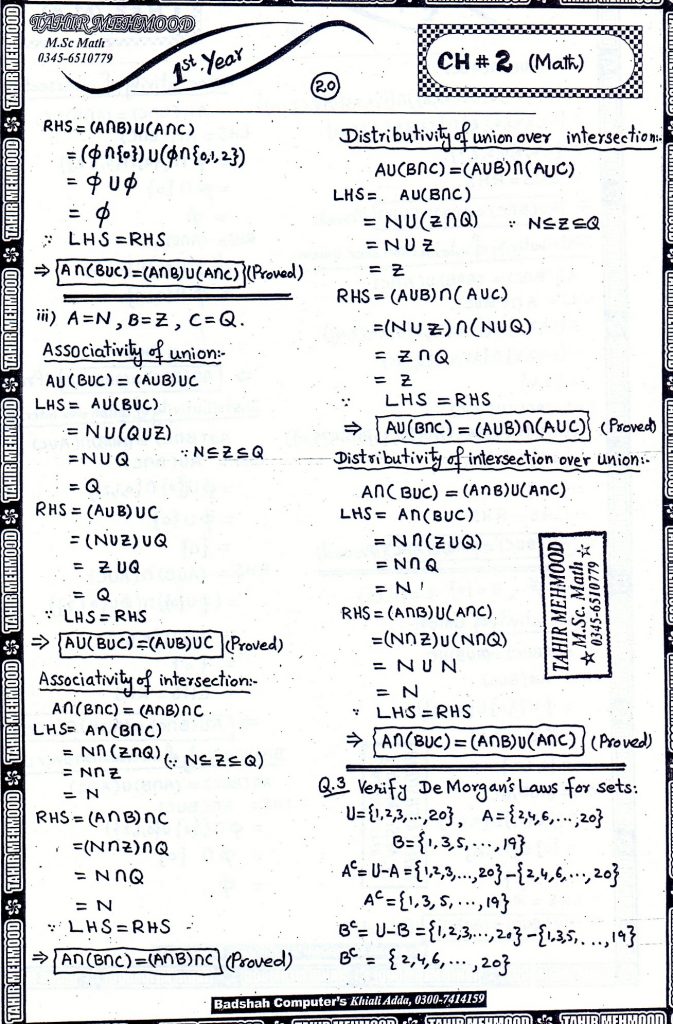 TAHIR MEHMOOD
M.Sc Math
0345-6510779
1st Year
20
CH # 2 (Math.)
RHS = (A∩B)∪(A∩C)
= (ϕ∩{0})∪(ϕ∩{0,1,2})
= ϕ∪ϕ
= ϕ
∵ LHS = RHS
⇒ A∩(B∪C)=(A∩B)∪(A∩C) (Proved)
iii) A=N, B=Z, C=Q.
Associativity of union:-
A∪(B∪C) = (A∪B)∪C
LHS = A∪(B∪C)
= N∪(Q∪Z)
= N∪Q ∵ N⊆Z⊆Q
= Q
RHS = (A∪B)∪C
= (N∪Z)∪Q
= Z∪Q
= Q
∵ LHS = RHS
⇒ A∪(B∪C)=(A∪B)∪C (Proved)
Associativity of intersection:-
A∩(B∩C) = (A∩B)∩C.
LHS= A∩(B∩C)
= N∩(Z∩Q) (∵ N⊆Z⊆Q)
= N∩Z
= N
RHS = (A∩B)∩C
=(N∩Z)∩Q
= N∩Q
= N
∵ LHS = RHS
⇒ A∩(B∩C)=(A∩B)∩C (Proved)
Distributivity of union over intersection:-
A∪(B∩C)=(A∪B)∩(A∪C)
LHS= A∪(B∩C)
= N∪(Z∩Q) ∵ N⊆Z⊆Q
= N∪Z
= Z
RHS = (A∪B)∩(A∪C)
=(N∪Z)∩(N∪Q)
= Z∩Q
= Z
∵ LHS = RHS
⇒ A∪(B∩C) = (A∪B)∩(A∪C) (Proved)
Distributivity of intersection over union:-
A∩(B∪C) = (A∩B)∪(A∩C)
LHS = A∩(B∪C)
= N∩(Z∪Q)
= N∩Q
= N
RHS = (A∩B)∪(A∩C)
=(N∩Z)∪(N∩Q)
= N∪N
= N
∵ LHS = RHS
⇒ A∩(B∪C) = (A∩B)∪(A∩C) (Proved)
TAHIR MEHMOOD
M.Sc. Math
☆ 0345-6510779 ☆
Q.3 Verify De Morgan's Laws for sets:
U={1,2,3,...,20}, A={2,4,6,...,20}
B={1,3,5,...,19}
Aᶜ= U-A = {1,2,3,...,20}-{2,4,6,...,20}
Aᶜ={1,3,5,...,19}
Bᶜ= U-B ={1,2,3,...,20}-{1,3,5,...,19}
Bᶜ = {2,4,6,...,20}
Badshah Computer's Khiali Adda, 0300-7414159
TAHIR MEHMOOD
TAHIR MEHMOOD
TAHIR MEHMOOD
TAHIR MEHMOOD
TAHIR MEHMOOD
TAHIR MEHMOOD
TAHIR MEHMOOD
TAHIR MEHMOOD